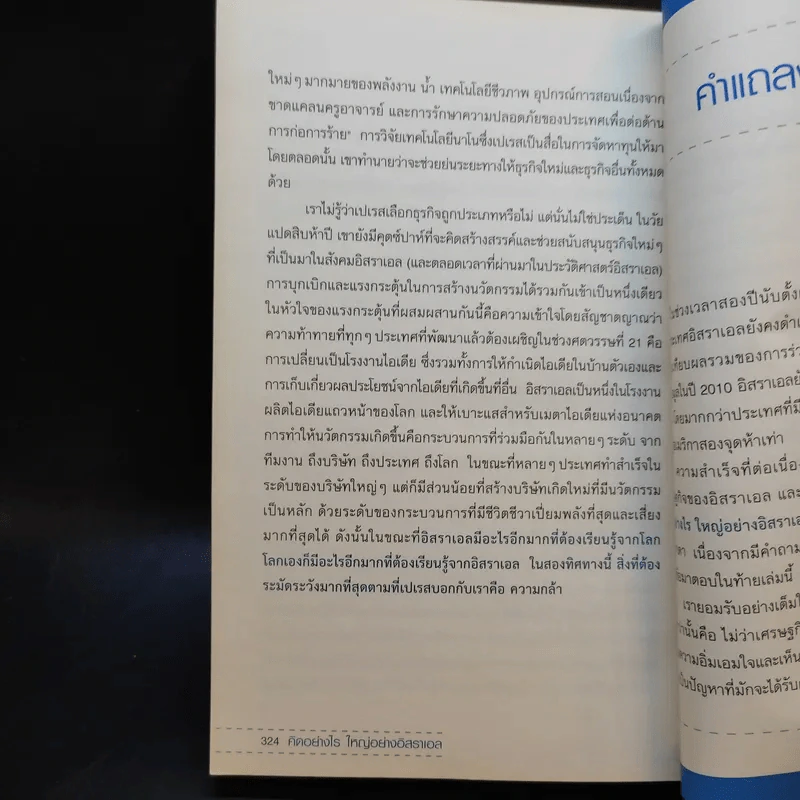 ใหม่ๆ มากมายของพลังงาน น้ำ เทคโนโลยีชีวภาพ อุปกรณ์การสอนเนื่องจาก
ขาดแคลนครูอาจารย์ และการรักษาความปลอดภัยของประเทศเพื่อต่อต้าน
การก่อการร้าย" การวิจัยเทคโนโลยีนาโนซึ่งเปเรสเป็นสื่อในการจัดหาทุนให้มา
โดยตลอดนั้น เขาทำนายว่าจะช่วยย่นระยะทางให้ธุรกิจใหม่และธุรกิจอื่นทั้งหมด
ด้วย
เราไม่รู้ว่าเปเรสเลือกธุรกิจถูกประเภทหรือไม่ แต่นั่นไม่ใช่ประเด็น ในวัย
แปดสิบห้าปี เขายังมีคุตซ์ปาห์ที่จะคิดสร้างสรรค์และช่วยสนับสนุนธุรกิจใหม่ๆ
ที่เป็นมาในสังคมอิสราเอล (และตลอดเวลาที่ผ่านมาในประวัติศาสตร์อิสราเอล)
การบุกเบิกและแรงกระตุ้นในการสร้างนวัตกรรมได้รวมกันเข้าเป็นหนึ่งเดียว
ในหัวใจของแรงกระตุ้นที่ผสมผสานกันนี้คือความเข้าใจโดยสัญชาตญาณว่า
ความท้าทายที่ทุกๆ ประเทศที่พัฒนาแล้วต้องเผชิญในช่วงศตวรรษที่ 21 คือ
การเปลี่ยนเป็นโรงงานไอเดีย ซึ่งรวมทั้งการให้กำเนิดไอเดียในบ้านตัวเองและ
การเก็บเกี่ยวผลประโยชน์จากไอเดียที่เกิดขึ้นที่อื่น อิสราเอลเป็นหนึ่งในโรงงาน
ผลิตไอเดียแถวหน้าของโลก และให้เบาะแสสำหรับเมตาไอเดียแห่งอนาคต
การทำให้นวัตกรรมเกิดขึ้นคือกระบวนการที่ร่วมมือกันในหลายๆ ระดับ จาก
ทีมงาน ถึงบริษัท ถึงประเทศ ถึงโลก ในขณะที่หลายๆ ประเทศทำสำเร็จใน
ระดับของบริษัทใหญ่ๆ แต่ก็มีส่วนน้อยที่สร้างบริษัทเกิดใหม่ที่มีนวัตกรรม
เป็นหลัก ด้วยระดับของกระบวนการที่มีชีวิตชีวาเปี่ยมพลังที่สุดและเสี่ยง
มากที่สุดได้ ดังนั้นในขณะที่อิสราเอลมีอะไรอีกมากที่ต้องเรียนรู้จากโลก
โลกเองก็มีอะไรอีกมากที่ต้องเรียนรู้จากอิสราเอล ในสองทิศทางนี้ สิ่งที่ต้อง
ระมัดระวังมากที่สุดตามที่เปเรสบอกกับเราคือ ความกล้า
324 คิดอย่างไร ใหญ่อย่างอิสราเอล
คำแถลง
ช่วงเวลาสองปีนับตั้งแ
ประเทศอิสราเอลยังคงดำเ
เทียบผลรวมของการร่ว
ในปี 2010 อิสราเอลยั
โดยมากกว่าประเทศที่มี
อเมริกาสองจุดห้าเท่า
ความสำเร็จที่ต่อเนื่อง
ของอิสราเอล และ
ใหญ่อย่างอิสราเอ
เนื่องจากมีคำถาม
มาตอบในท้ายเล่มนี้
เรายอมรับอย่างเต็มใ
นั้นคือ ไม่ว่าเศรษฐกิ
ความอิ่มเอมใจและเห็น
ในปัญหาที่มักจะได้รับ